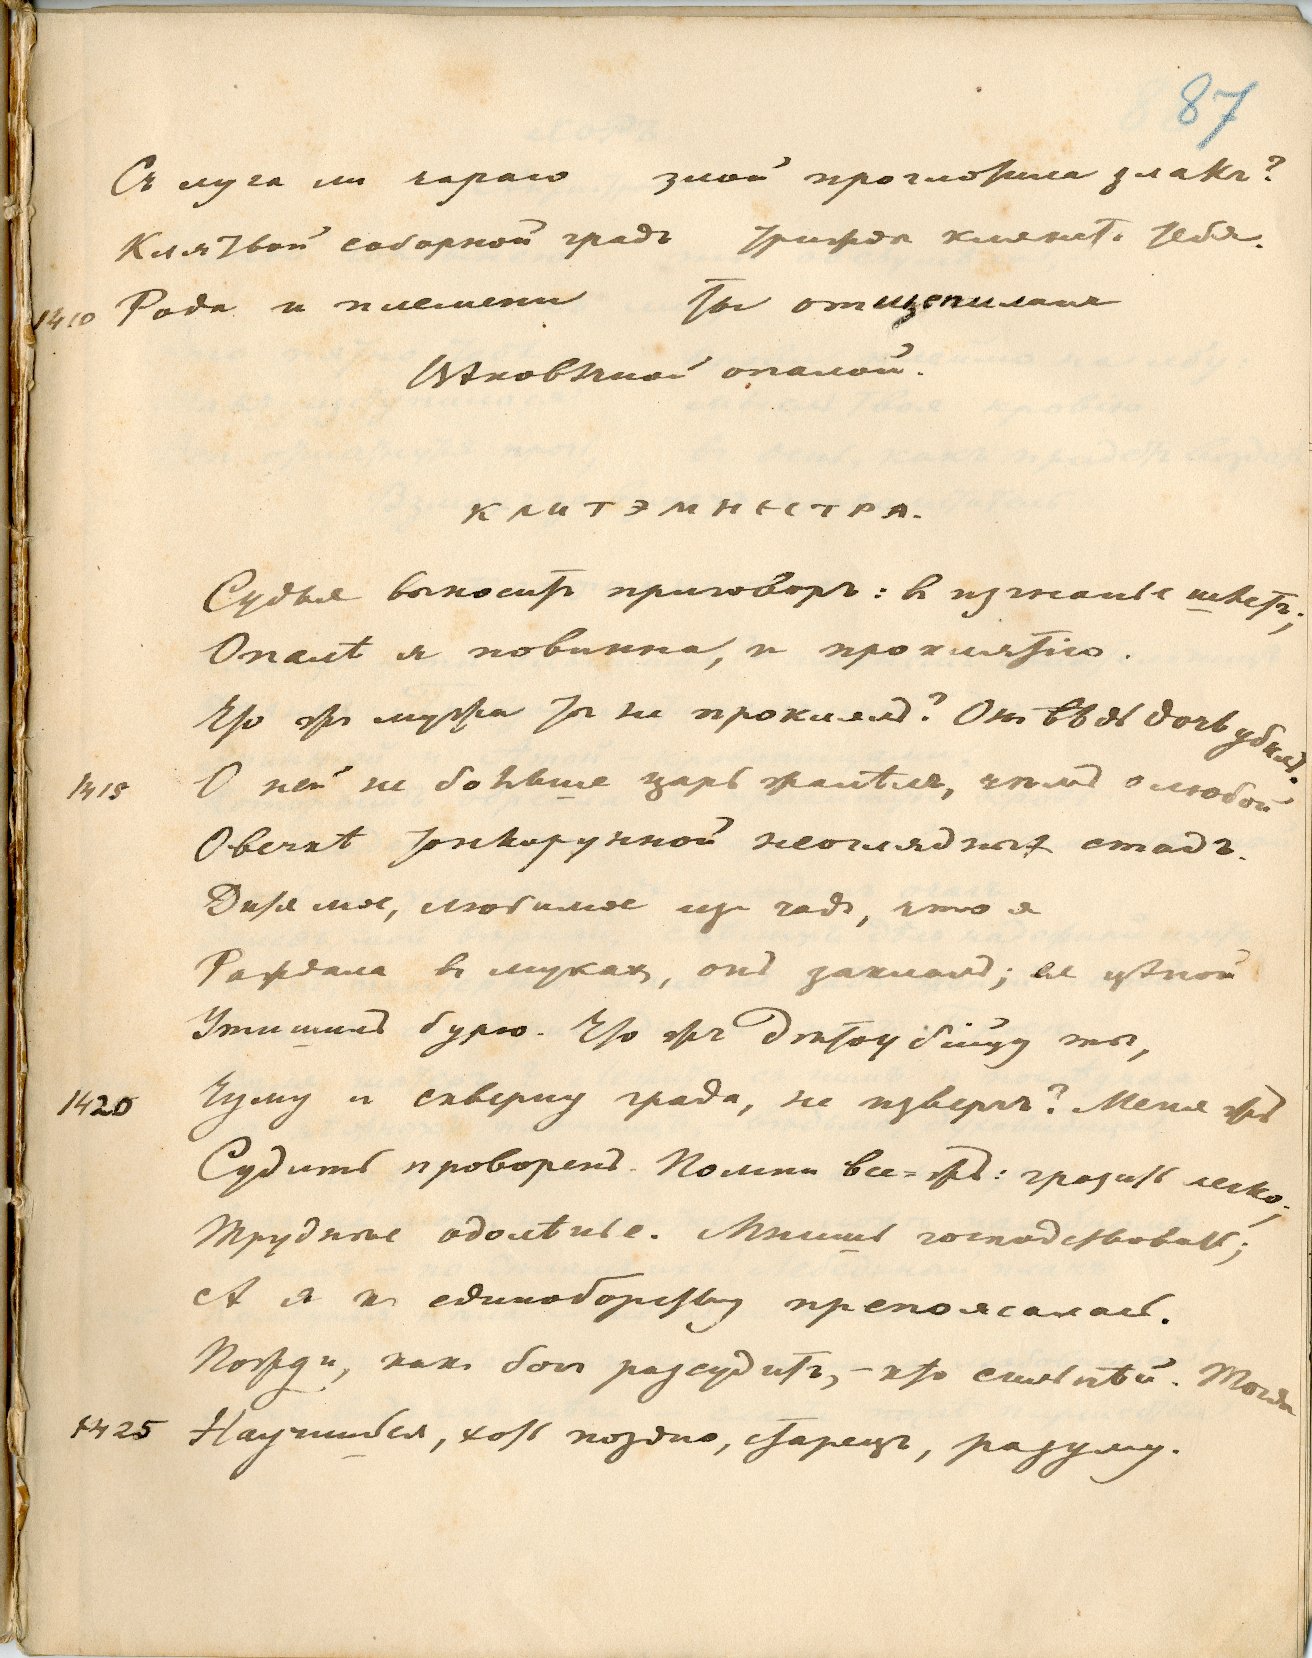 87
Съ луга ли чарою злой проглотила злакъ?
Клятвой соборной градъ трижды клянетъ тебя.
1410 Рода и племени ты отщепилась
Иновѣчной опалой.
КЛИТЭМНЕСТРА.
Судья выноситъ приговоръ: въ изгнанье шлетъ;
Опалѣ я повинна, и проклятію.
Что жъ мужа ты не проклялъ? Онъ вѣдь дочь убилъ.
1415 О ней не больше царь жалѣлъ, чѣмъ о любой
Овечкѣ тонкорунной неоглядныхъ стадъ.
Дитя мое, любимое изъ чадъ, что я
Рождала въ мукахъ, онъ заклалъ; ея цѣной
Утишилъ бурю. Что жъ дѣтоубійцу ты,
1420 Чуму и скверну града, не извергъ? Меня жъ
Судить проворенъ. Помни все-жъ: грозить легко;
Труднѣе одолѣнье. Мнишь господствовать;
А я къ единоборству препоясалась.
Пожди, какъ бой разсудитъ, – кто сильнѣй. Тогда
1425 Научишься, хоть поздно, старецъ, разуму.